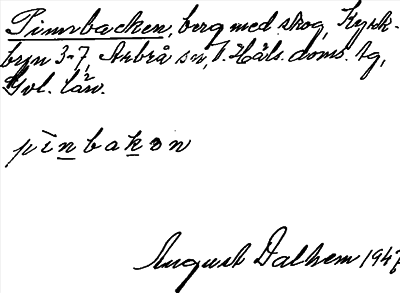 Pinnsbacken, berg med skog, Kyrk-
byn 3-7, Arbrå sn, V. Häls. doms. tg,
Gvl. län.
pinbakan
August Dalhem 1947